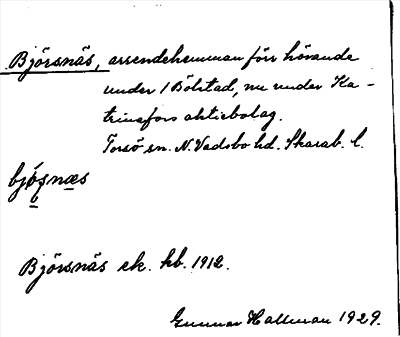 Björsnäs, arrendehemman förr hörande
under 1 Bölstad, nu under Ka-
trinefors aktiebolag.
Torsö sn. N. Vadsbo hd. Skarab. l.
bjösnæs
Björsnäs ek. kb. 1912.
Gunnar Hallman 1929.